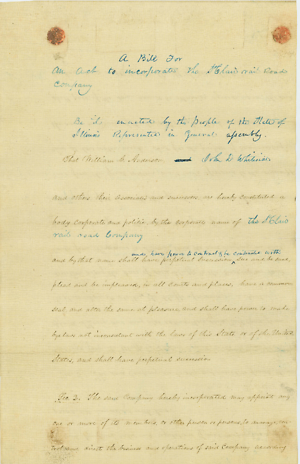 A Bill For
An act to incorporate the St Clair rail road
Company
Be it enacted by the people of the State of
Illinois Represented in General assembly.
That William C Anderson — John D Whiteside
and others their associates and successors, are hereby constituted a
body corporate and politic by the corporate name of the St Clair
rail road Company
may have power to contract & be contracted with
and by that name shall have perpetual succession, sue and be sued,
plead and be impleaded, in all courts and places, have a common
seal, and alter the same at pleasure and shall have power to make
by laws not inconsistent with the laws of this State or of the United
States, and shall have perpetual succession
Sec 2. The said Company hereby incorporated may appoint any
one or more of its members or other person or persons to
and direct the business and operations of said Company